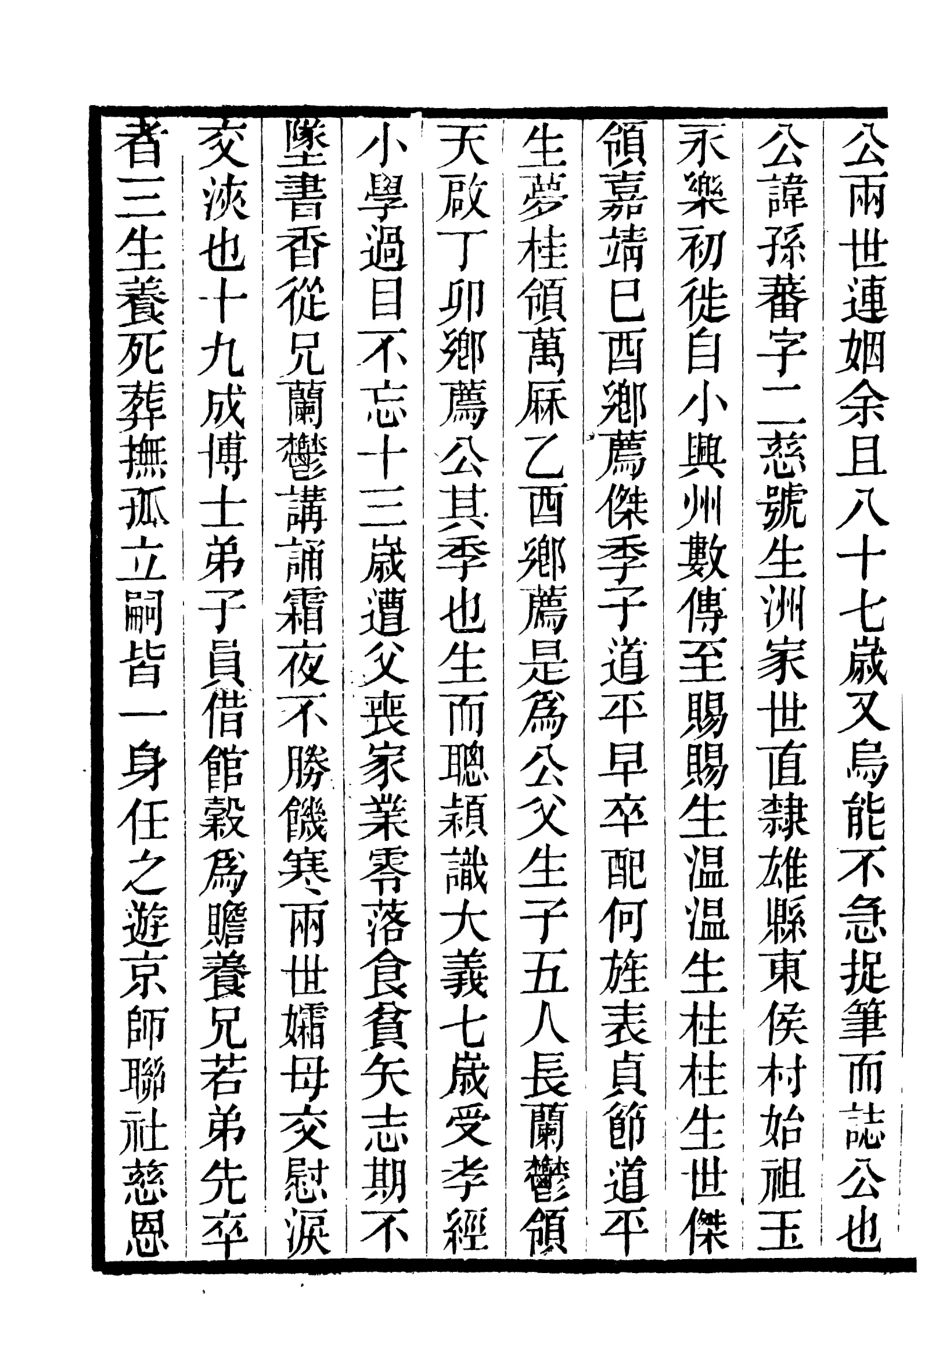 公兩世連姻余且八十七歲又烏能不急捉筆而誌公也
公諱孫蕃字二慈號生洲家世直隸雄縣東侯村始祖玉
永樂初徙自小興州數傳至賜賜生温温生桂桂生世傑
領嘉靖巳酉鄉薦傑季子道平早卒配何旌表貞節道平
生夢桂領萬厤乙酉鄉薦是爲公父生子五人長蘭鬱領
天啟丁卯鄉薦公其季也生而聰穎識大義七歲受孝經
小學過目不忘十三歲遭父喪家業零落食貧矢志期不
墜書香從兄蘭鬱講誦霜夜不勝饑寒兩世孀母交慰淚
交浹也十九成博士弟子員借館穀爲贍養兄若弟先卒
者三生養死葬撫孤立嗣皆一身任之遊京師聯社慈恩